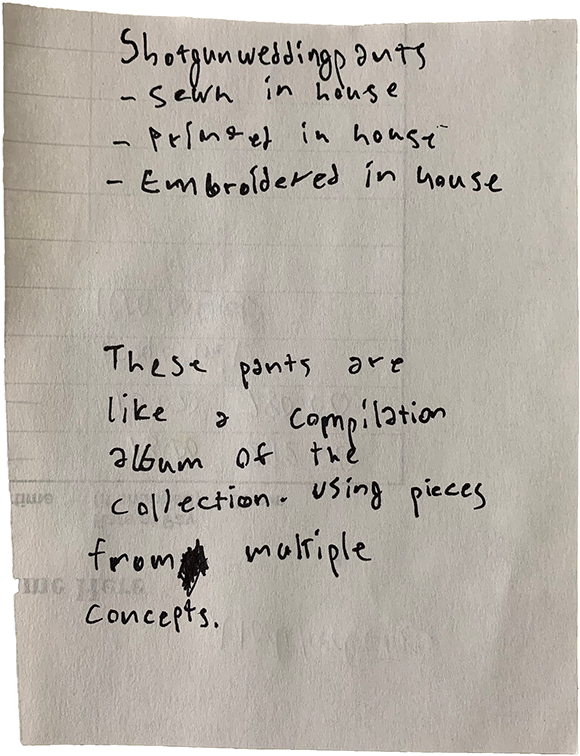 Shotgunweddingpants
- Sewn in house
- Printed in house
- Embroidered in house
These pants are
like a compilation
album of the
collection. using pieces
from multiple
concepts.